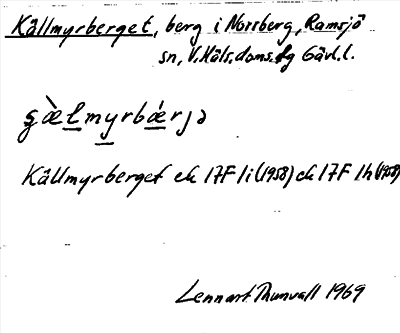 Källmyrberget, berg i Norrberg, Ramsjö
sn, V. Häls. doms. fg Gävl. l.
ʂæ̀lmyrbǽrjə
Källmyrberget ek 17F 1i (1958) ek 17F 1h (1958)
Lennart Thunvall 1969